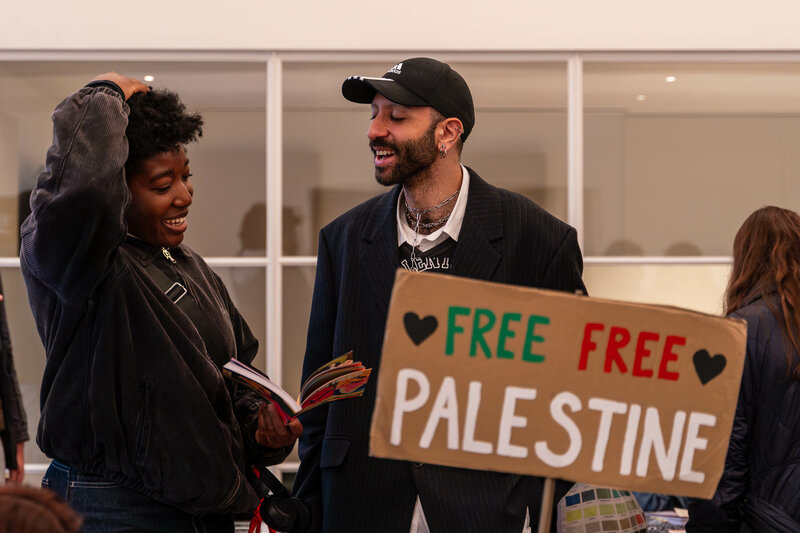 FREE FREE
PALESTINE